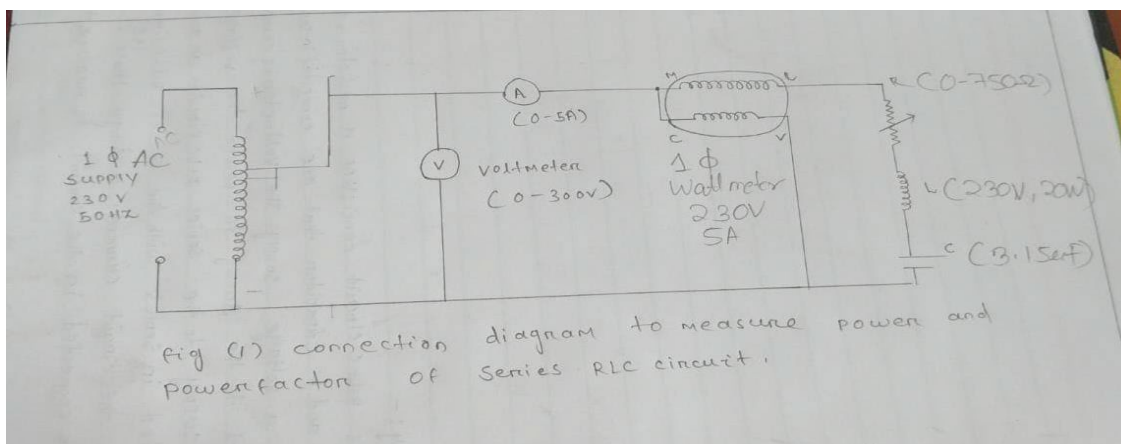 1 ϕ AC
Supply
230 V
50HZ
A
(0-5A)
V
voltmeter
(0-300V)
M
L
C
V
1 ϕ
Wattmeter
230V
5A
R (0-750Ω)
L (230V, 20W)
C
fig (1) connection diagram to measure power and
powerfactor of series RLC circuit.